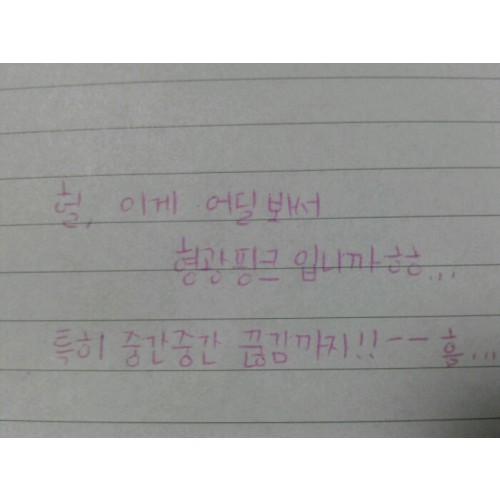 헐, 이게 어딜봐서
형광핑크입니까흐흐...
특히 중간중간 끊김까지!!-- 흠...